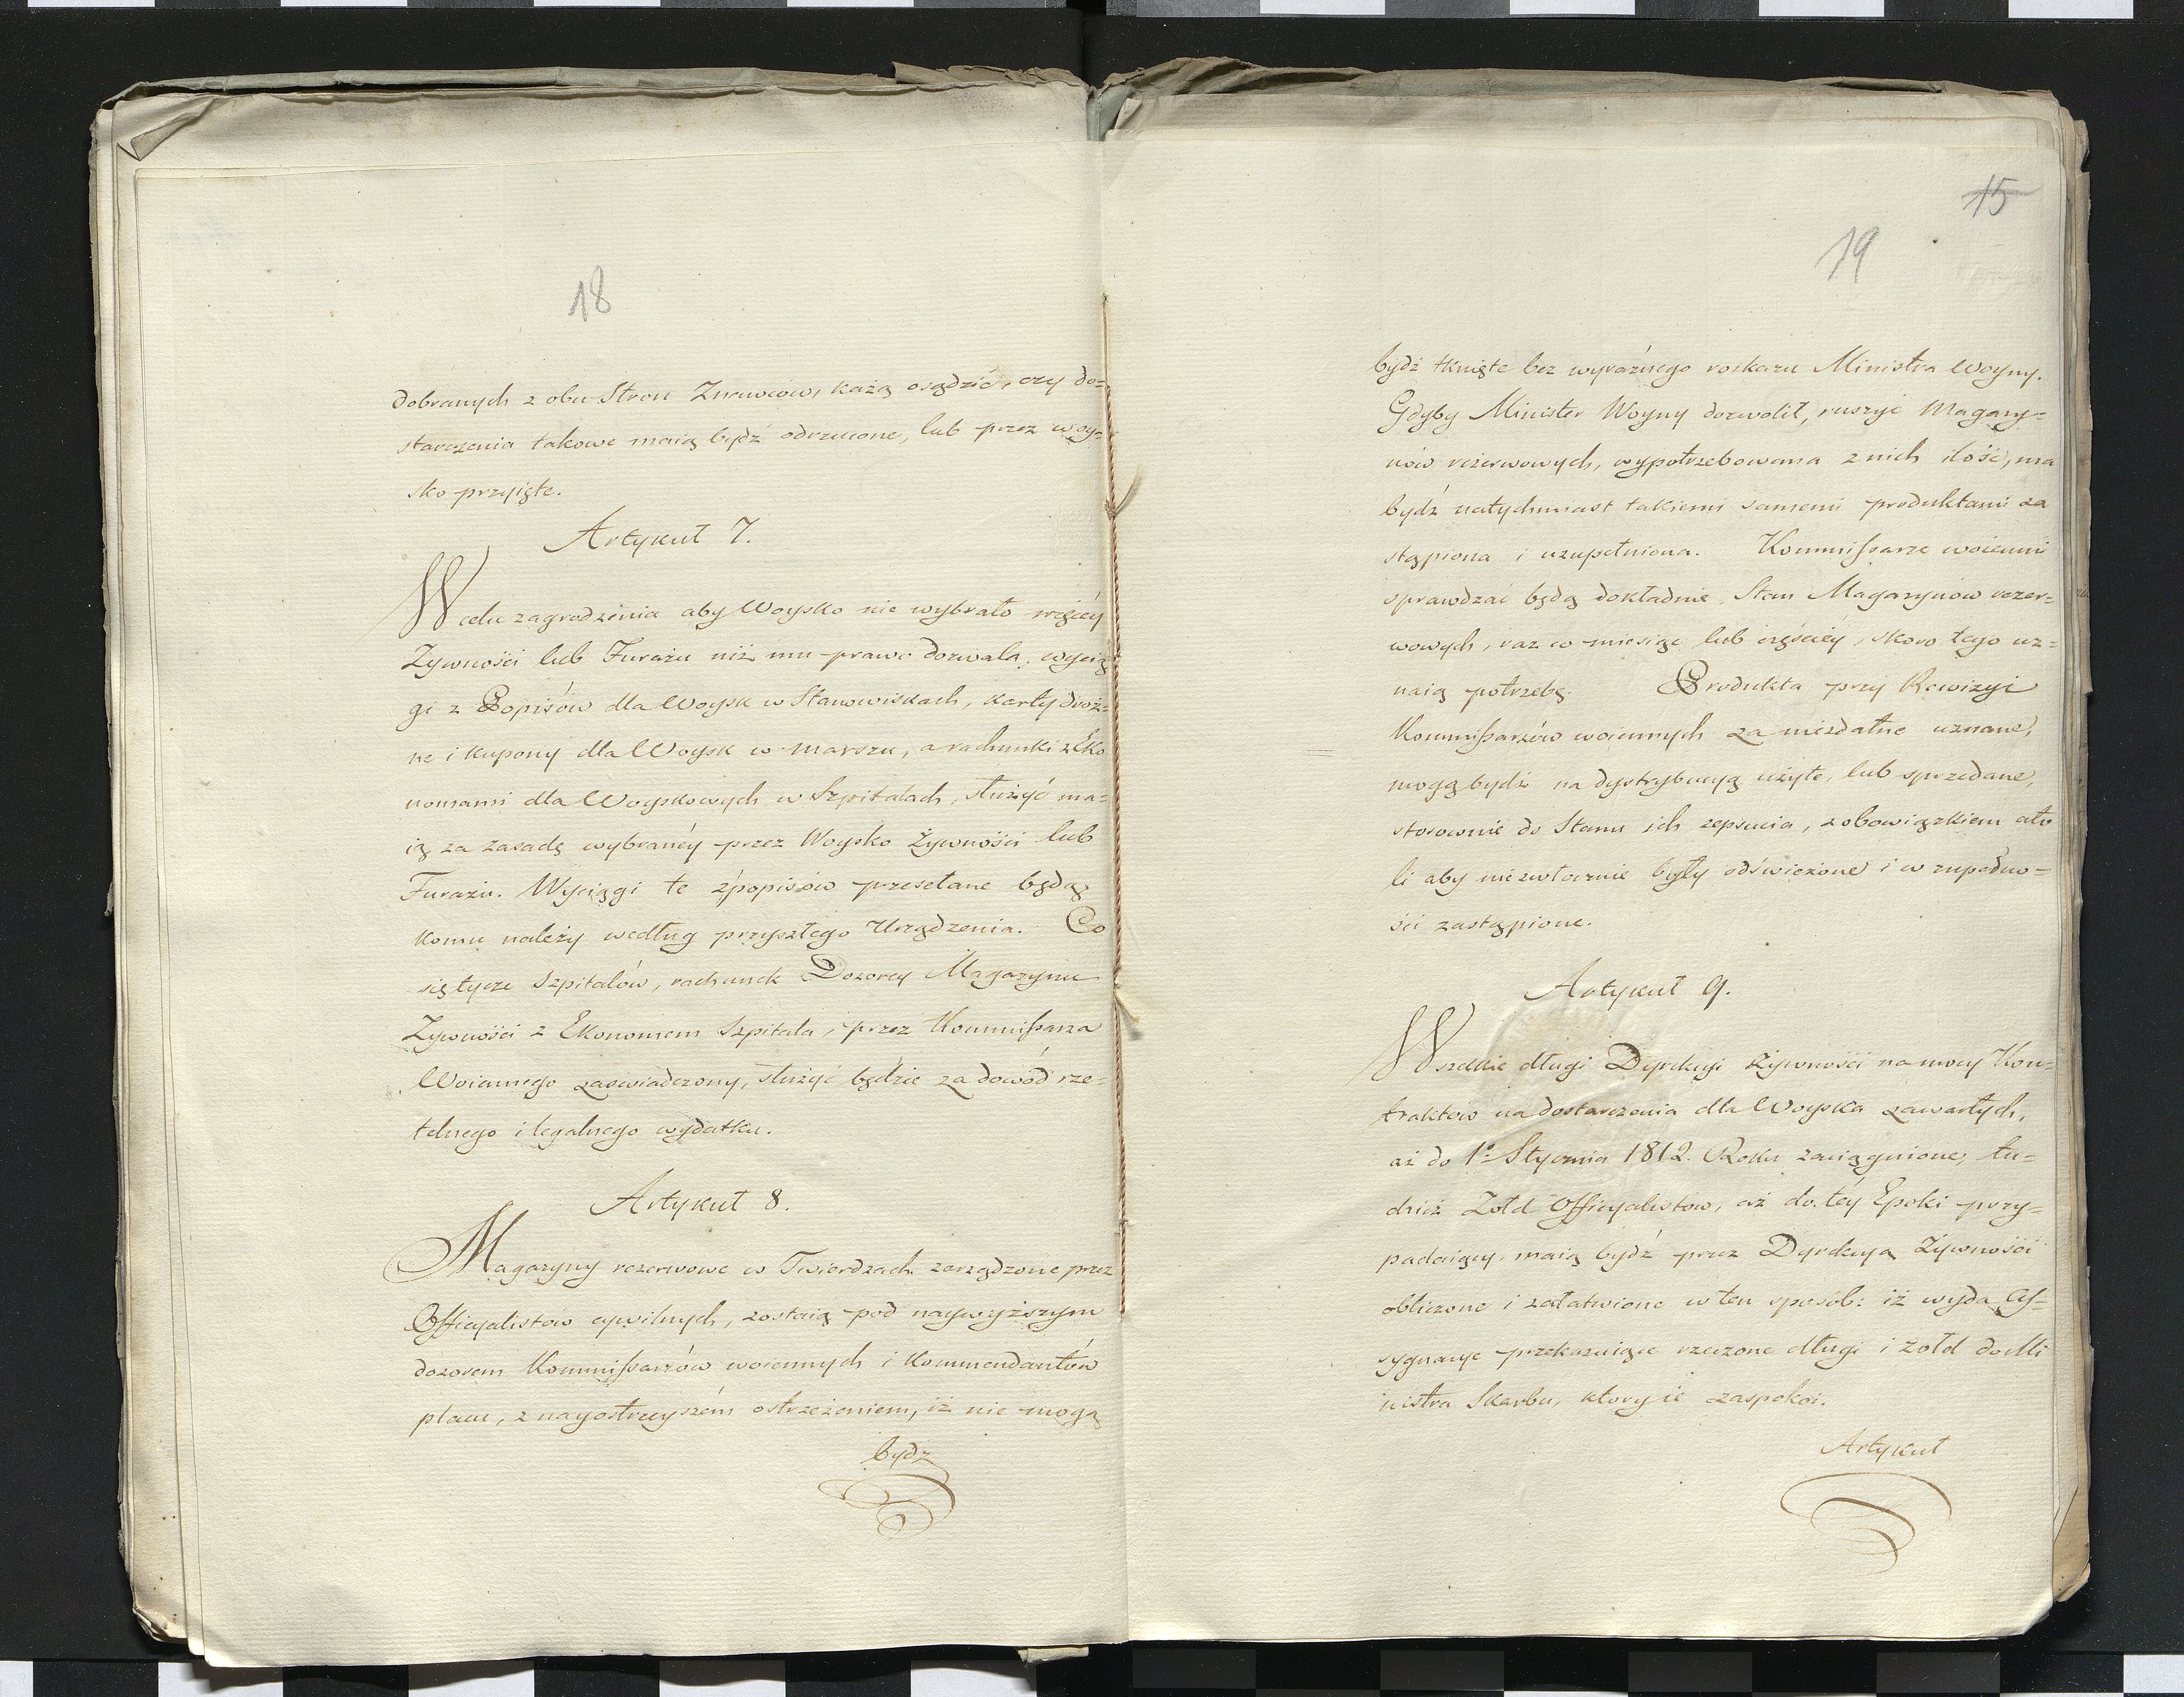 18
dobranych z obu Stron Znawców, każą osądzić, czy do=
starczenia takowe maią bydź odrzucone, lub przez woy=
sko przyięte.
Artykuł 7.
W celu zagrodzenia aby Woysko nie wybrało więcéy
Żywności lub Furażu niż mu prawo dozwala, wycią
gi z Popisów dla Woysk w Stanowiskach, karty droż=
ne i kupony dla Woysk w marszu, a rachunki z Eko
nomami dla Woyskowych w Szpitalach, służyć ma=
ią za zasadę wybranéy przez Woysko Żywności lub
Furażu. Wyciągi te z popisów przesełane będą
komu należy według przyszłego Urządzenia. Co
się tycze Szpitalów, rachunek Dozorcy Magazynu
Żywności z Ekonomem Szpitala, przez Kommissarza
Woiennego zaswiadczony, służyć będzie za dowód rze=
telnego i legalnego wydatku.
Artykuł 8.
Magazyny rezerwowe w Twierdzach zarządzone przez
Officyalistów cywilnych, zostaią pod naywyższym
dozorem Kommissarzów woiennych i Kommendantów
placu, z nayostrzeyszém ostrzeżeniem, iż nie mogą
bydz
15
19
bydź tknięte bez wyraźnego roskazu Ministra Woyny.
Gdyby Minister Woyny dozwolił, ruszyć Magazy=
nów rezerwowych, wypotrzebowana z nich ilość, ma
bydź natychmiast takiemi samemi produktami za
stąpiona i uzupełniona. Kommissarze woienni
sprawdzać będą dokładnie, Stan Magazynów rezer=
wowych, raz co miesiąc lub częściéy, skoro tego uz=
naią potrzebę. Produkta przy Rewizyi
Kommissarzów woiennych za niezdatne uznane,
mogą bydź na dystrybucyą użyte, lub sprzedane,
stosownie do Stanu ich zepsucia, z obowiązkiem ato
li aby niezwłocznie były odświeżone i w zupełno=
ści zastąpione.
Artykuł 9.
Wszelkie długi Dyrekcyi Żywności na mocy Kon=
traktów na dostarczenia dla Woyska zawartych,
aż do 1º Stycznia 1812. Roku zaciągnione, tu=
dzież Żołd Officyalistów, aż do téy Epoki przy=
padaiący, maią bydź przez Dyrekcyą Żywności
obliczone i załatwione w ten sposób: iż wyda As=
sygnacye przekazuiące rzeczone długi i żołd do Mi
nistra Skarbu, ktory ie zaspokoi.
Artykuł